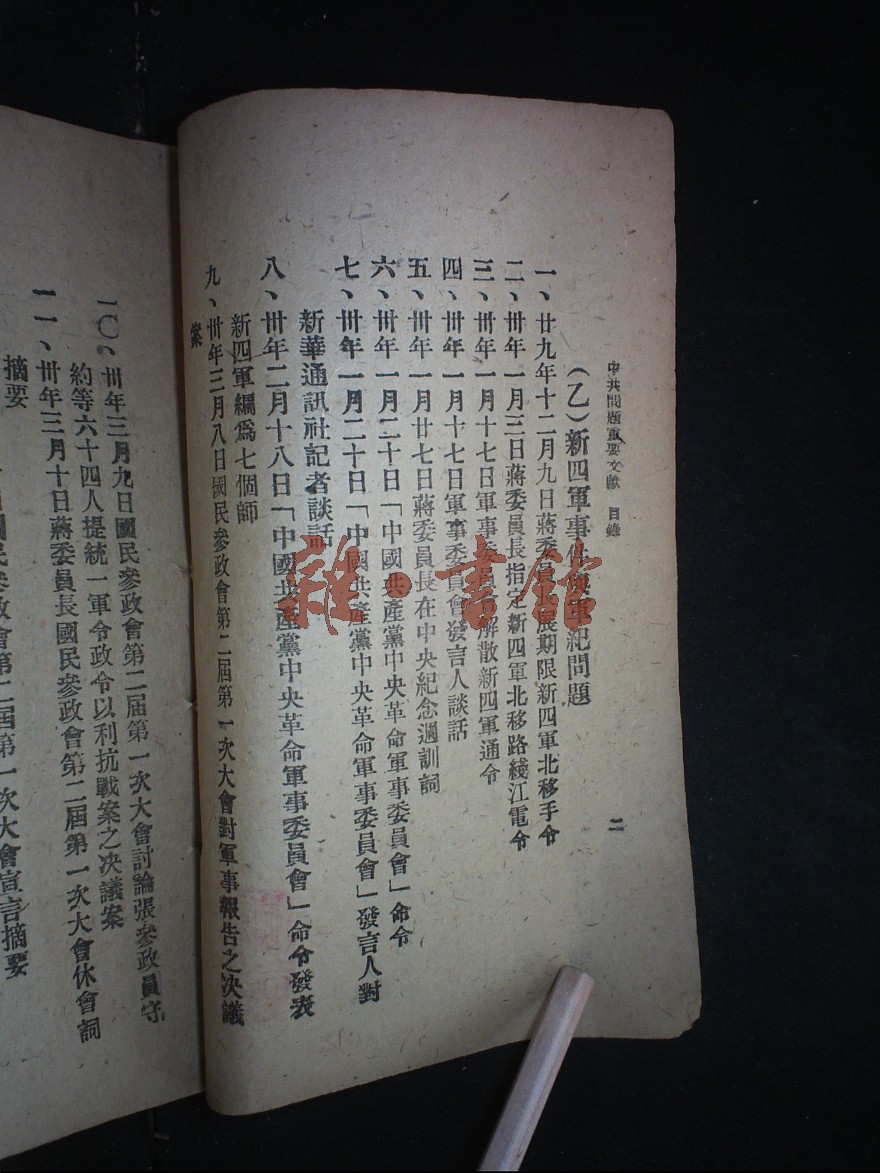 中共問題重要文獻 目錄
二
（乙）新四軍事件後軍紀問題
一、廿九年十二月九日蔣委員長展期限新四軍北移手令
二、卅年一月三日蔣委員長指定新四軍北移路綫江電令
三、卅年一月十七日軍事委員會解散新四軍通令
四、卅年一月十七日軍事委員會發言人談話
五、卅年一月廿七日蔣委員長在中央紀念週訓詞
六、卅年一月二十日「中國共產黨中央革命軍事委員會」命令
七、卅年一月二十日「中國共產黨中央革命軍事委員會」發言人對
新華通訊社記者談話
八、卅年二月十八日「中國共產黨中央革命軍事委員會」命令發表
新四軍編爲七個師
九、卅年三月八日國民參政會第二屆第一次大會對軍事報告之决議
案
一〇、卅年三月九日國民參政會第二屆第一次大會討論張參政員守
約等六十四人提統一軍令政令以利抗戰案之决議案
一一、卅年三月十日蔣委員長國民參政會第二屆第一次大會休會詞
摘要
國民參政會第二屆第一次大會宣言摘要
雜·書館